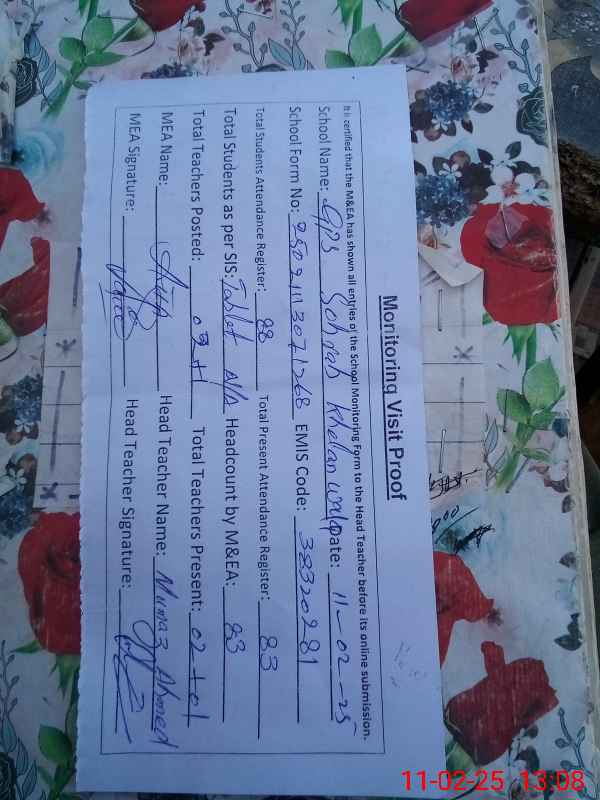 Monitoring Visit Proof
It is certified that the M&EA has shown all entries of the School Monitoring Form to the Head Teacher before its online submission.
School Name: GPS Sohrab Khelan wala Date: 11-02-25
School Form No: 250211113071268 EMIS Code: 38320281
Total Students Attendance Register: 88 Total Present Attendance Register: 83
Total Students as per SIS: Tablet Headcount by M&EA: 83
Total Teachers Posted: 02+1 Total Teachers Present: 02+01
MEA Name: Head Teacher Name: Mumaz Ahmed
MEA Signature: Head Teacher Signature:
11-02-25 13:08